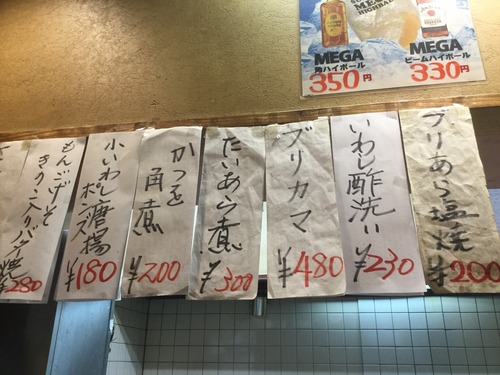 MEGA
MEGA
HIGHBALL
MEGA
角ハイボール
350円
MEGA
ビームハイボール
330円
ブリあら塩焼
¥200
いわし酢洗い
¥230
ブリカマ
¥480
たいあら煮
¥300
かつを
角煮
¥200
小いわし唐揚
ポンズ
¥180
もんごげそ
きのこ入りバター焼
¥280